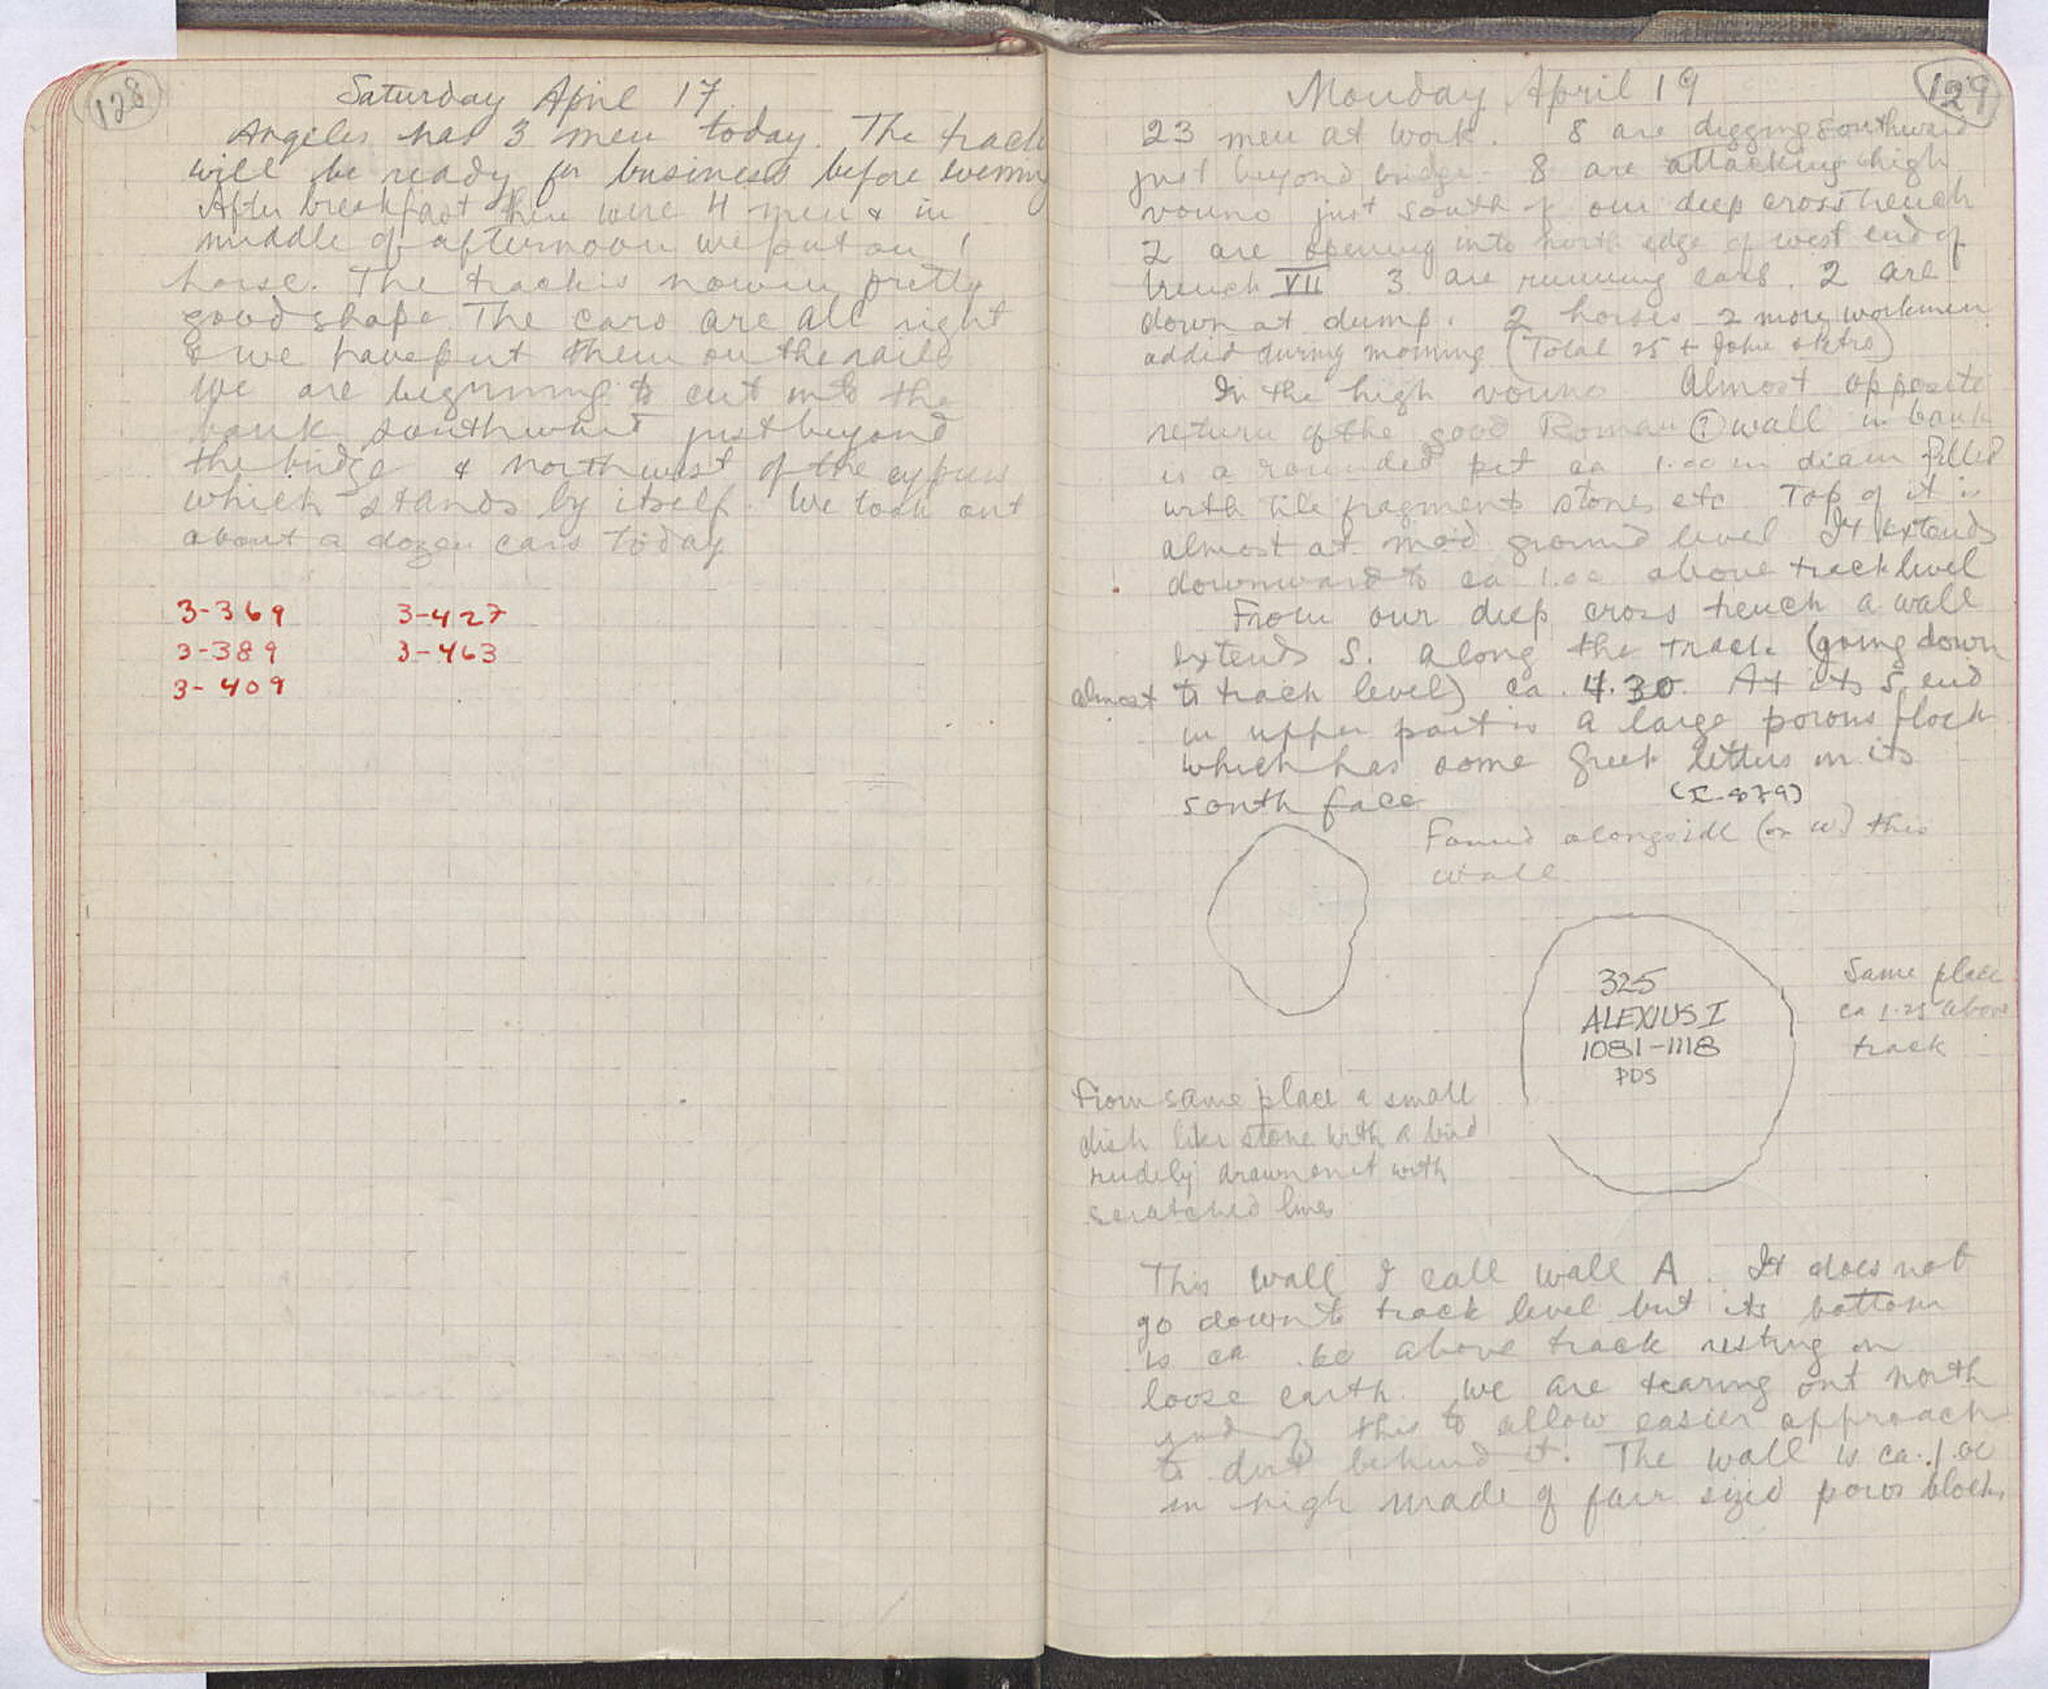 128
Saturday April 17
Angelis has 3 men today. The track
will be ready for business before evening
After breakfast there were 4 men & in
middle of afternoon we put on 1
horse. The track is now in pretty
good shape. The cars are all right
& we have put them on the rails
We are beginning to cut into the
bank southward just beyond
the bridge & northwest of the cypress
which stands by itself. We took out
about a dozen cars today
3-369 3-427
3-389 3-463
3-409
129
Monday April 19
23 men at work. 8 are digging southward
just beyond bridge - 8 are attacking high
vouno just south of our deep cross trench
2 are opening into north edge of west end of
trench VII 3 are running cars. 2 are
down at dump. 2 horses 2 more workmen
added during morning (Total 25 + John)
In the high vouno almost opposite
return of the good Roman (?) wall in bank
is a rounded pit ca 1.00 m diam filled
with tile fragments stones etc Top of it is
almost at mod ground level It extends
downward to ca 1.00 above track level
From our deep cross trench a wall
extends S. along the track (going down
almost to track level) ca. 4.30. At its S. end
in upper part is a large poros block
which has some Greek letters on its
south face (I-879)
Found alongside (on W) this
wall
325
ALEXIUS I
1081-1118
PDS
Same place
ca 1.25 above
track
From same place a small
dish like stone with a bird
rudely drawn on it with
scratched lines
This wall I call wall A. It does not
go down to track level but its bottom
is ca .60 above track resting on
loose earth. We are tearing out north
end of this to allow easier approach
to dirt behind it. The wall is ca. 1.00
m high made of fair sized poros blocks